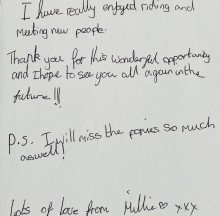 I have really enjoyed riding and
meeting new people.
Thank you for this wonderful opportunity
and I hope to see you all again in the
future!!!
P.S. I will miss the ponies so much
aswell!
Lots of love from Millie♡ xxx